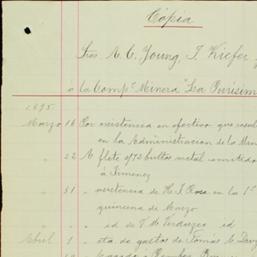 Copia
Sres. A. C. Young, J. Kiefer y
a la Comp.ª Minera "La Purisim
1895
Marzo 16 Por existencia en efectivo que resul
en la Administracion de la Min
" 22 A flete s/72 bultos metal remitidos
á Jimenez
" 31 " asistencia de H. J. Rosa en la 1ª
quincena de Marzo
" " " id de V. M. Verduzco id
Abril 1 " cta de gastos de Tomás C. Davy